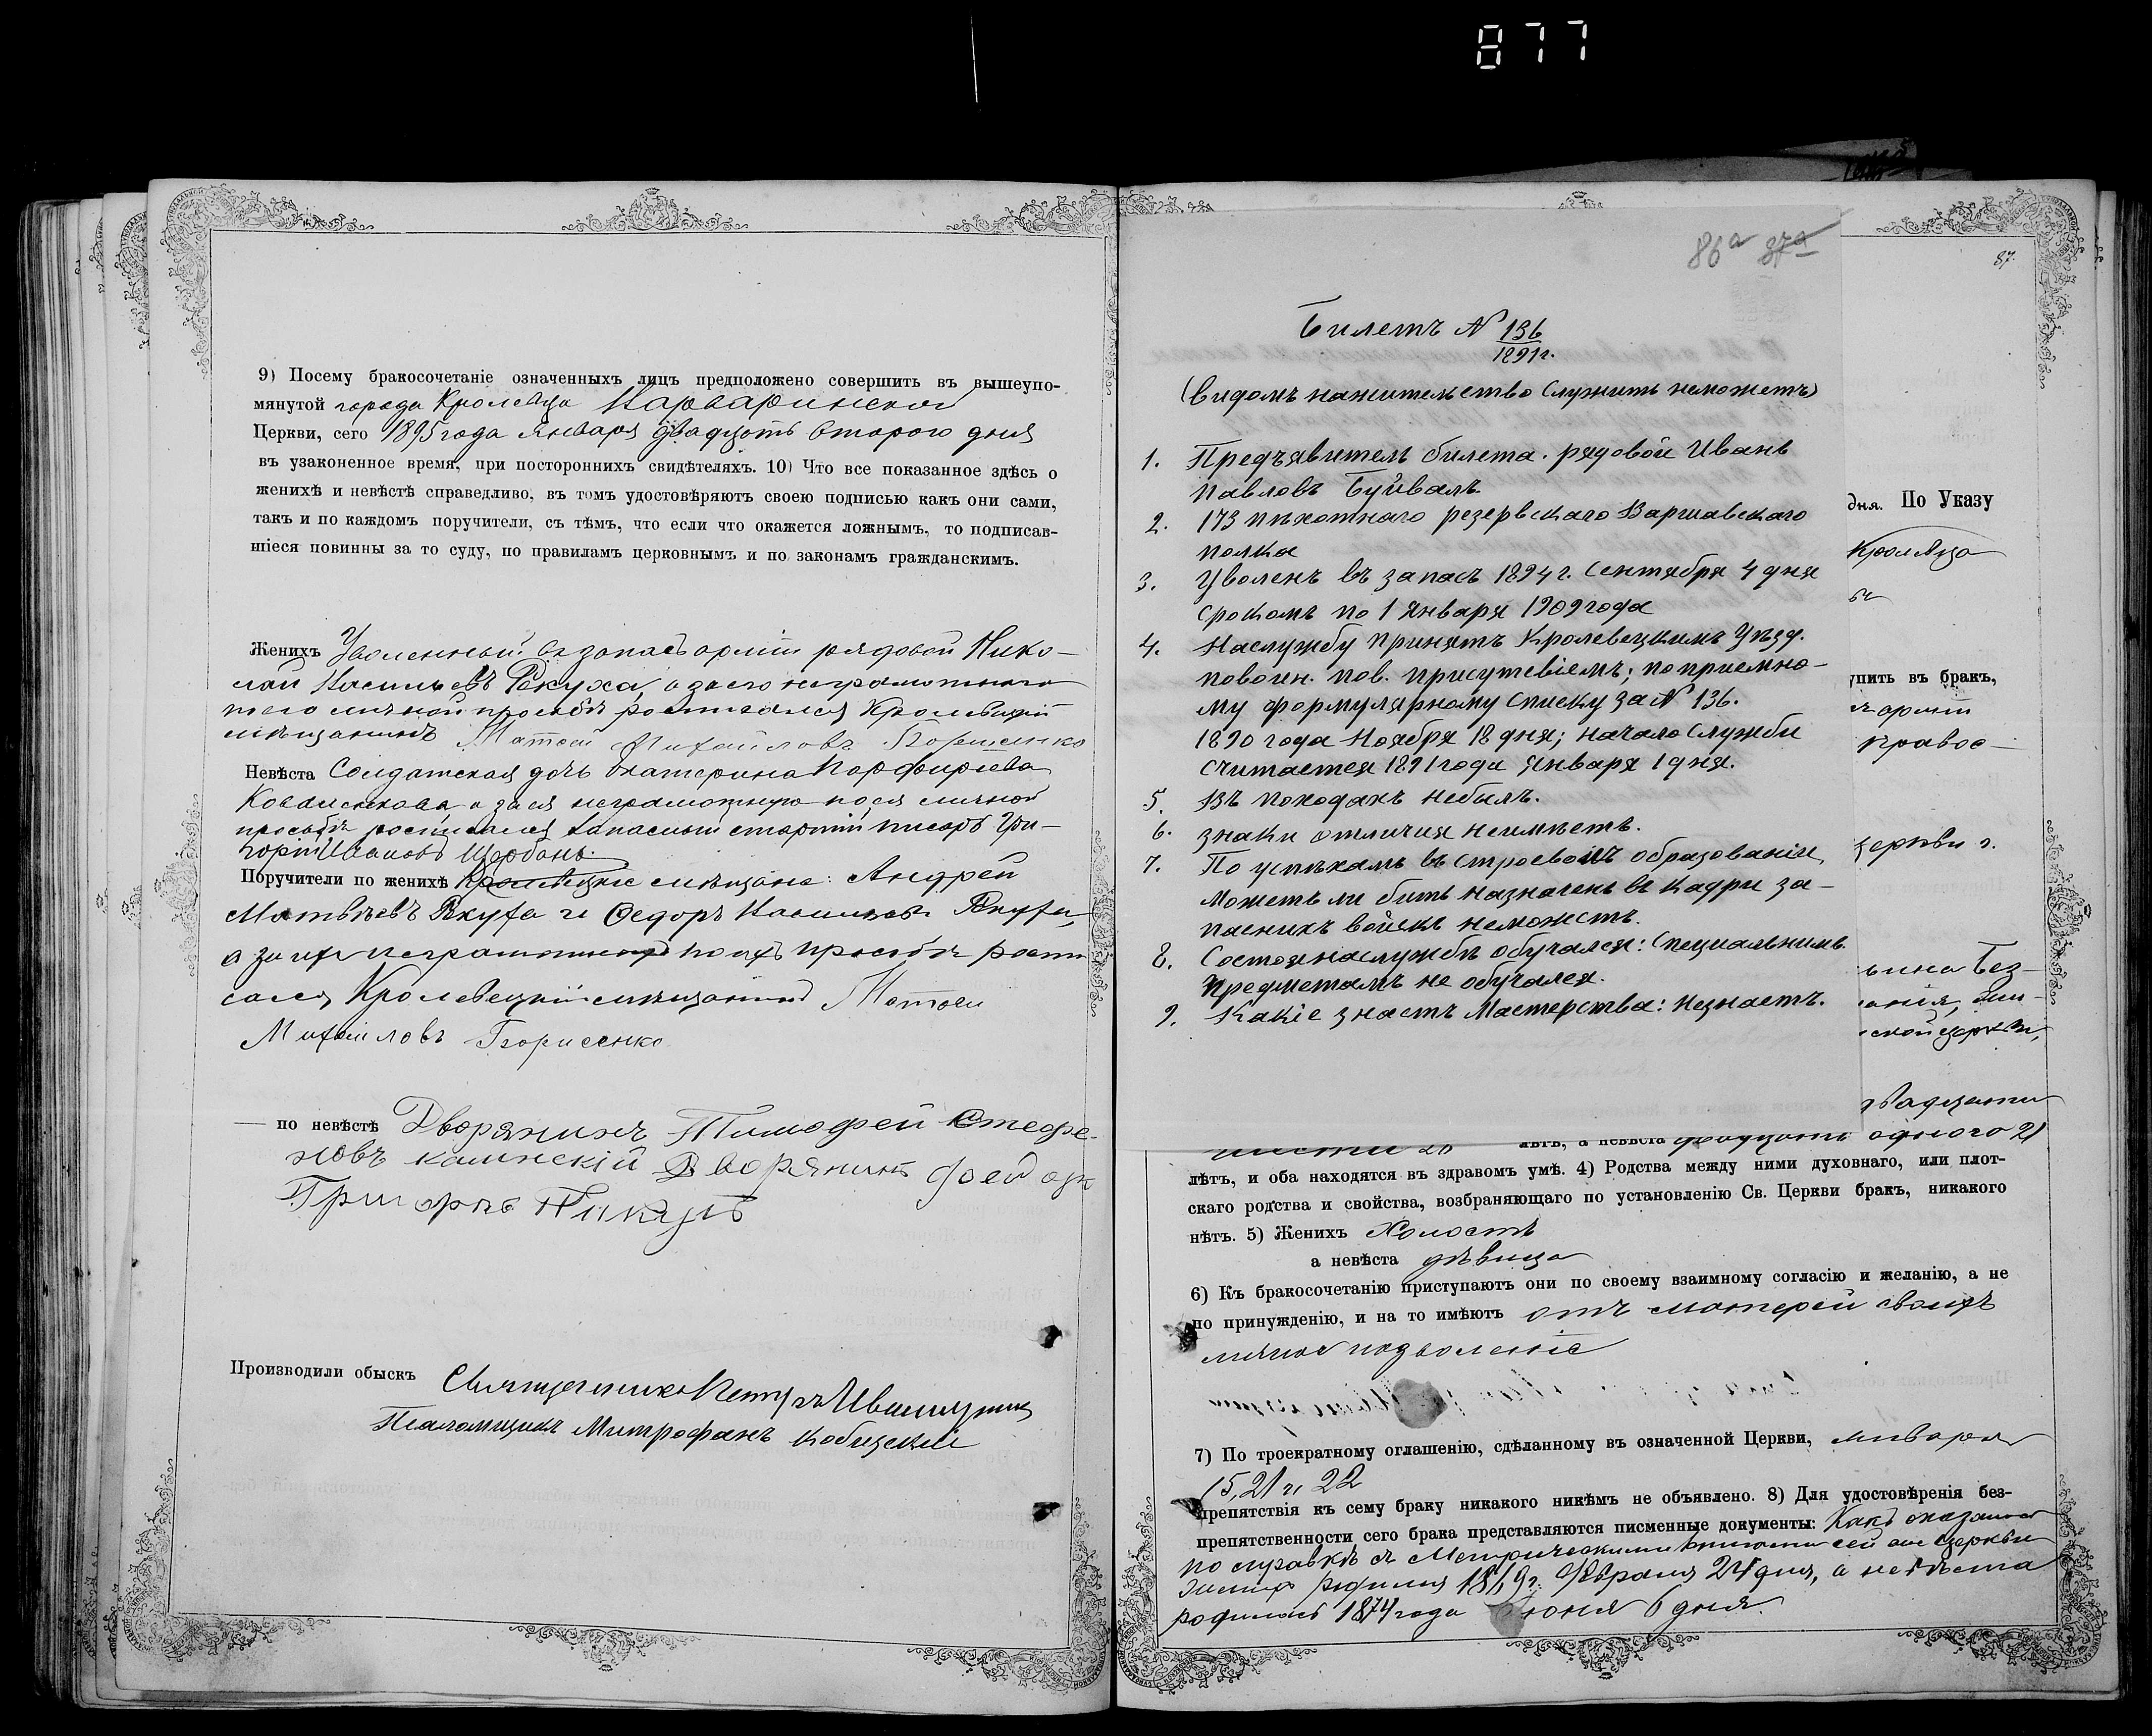 877
9) Посему бракосочетаніе означенныхъ лицъ предположено совершить въ вышеупо-
мянутой города Кролевца Варваринской
Церкви, сего 1895 года Января двадцать второго дня
въ узаконенное время, при постороннихъ свидѣтеляхъ. 10) Что все показанное здѣсь о
женихѣ и невѣстѣ справедливо, въ томъ удостовѣряютъ своею подписью какъ они сами,
такъ и по каждомъ поручители, съ тѣмъ, что если что окажется ложнымъ, то подписав-
шіеся повинны за то суду, по правиламъ церковнымъ и по законамъ гражданскимъ.
Женихъ Уволенный въ запасъ арміи рядовой Нико-
лай Васильевъ Рекуха, а за его неграмотного
по его личной просьбѣ росписался Кролевецкій
мѣщанинъ Матвей Михайловъ Борисенко
Невѣста Солдатская дочь Екатерина Порфирьева
Коваленкова, а за ея неграмотную по ея личной
просьбѣ росписался запасный старшій писарь Гри-
горій Ивановъ Щербань.
Поручители по женихѣ Кролевецкіе мѣщане: Андрей
Матвѣевъ Рекуха и Федоръ Васильевъ Рекуха,
а за ихъ неграмотныхъ по ихъ просьбѣ роспи
сался Кролевецкій мѣщанинъ Матвеи
Михаиловъ Борисенко
по невѣстѣ Дворянинъ Тимофей Стефа-
новъ калинскій Дворянинъ
Производили обыскъ Священникъ Петръ
Псаломщикъ Митрофанъ Кобицскій
86а 87а
87.
Билетъ № 136
1891 г.
(видомъ на жительство служить не можетъ)
1. Предъявитель билета. рядовой Иванъ
Павловъ Буйвалъ.
2. 173 пѣхотнаго резервскаго Варшавскаго
полка
3. Уволенъ въ запасъ 1894 г. Сентября 4 дня
срокомъ по 1 января 1909 года
4. На службу принятъ Кролевецкимъ Уѣзд.
по воин. пов. присутствіемъ; по приемно-
му формулярному списку за № 136.
1890 года Ноября 18 дня; начало службы
считается 1891 года Января 1 дня.
5. Въ походахъ небылъ.
6. знаки отличия неимѣетъ.
7. По успѣхамъ въ строевомъ образованіи,
Можетъ ли быть назначенъ въ кадри за-
пасныхъ войскъ неможетъ.
8. Состоя на службѣ обучался: Специальнимъ
предметамъ не обучался.
9. Какіе знаетъ Мастерства: Незнаетъ.
дня. По Указу
Кролевца
упить въ бракъ,
арміи
правос-
церкви г.
двадцати
лѣтъ, а невѣста двадцать одного 21
лѣтъ, и оба находятся въ здравомъ умѣ. 4) Родства между ними духовнаго, или плот-
скаго родства и свойства, возбраняющаго по установленію Св. Церкви бракъ, никакого
нѣтъ. 5) Женихъ Холостъ
а невѣста дѣвица
6) Къ бракосочетанію приступаютъ они по своему взаимному согласію и желанію, а не
по принужденію, и на то имѣютъ отъ матерей своихъ
личное позволеніе
7) По троекратному оглашенію, сдѣланному въ означенной Церкви, января
15, 21 и 22
препятствія къ сему браку никакого никѣмъ не объявлено. 8) Для удостовѣренія без-
препятственности сего брака представляются писменные документы: Какъ оказалось
по справкѣ съ Метрическими книгами сей же церкви
женихъ родился 1869 г. Февраля 24 дня, а невѣста
родилась 1874 года июня 6 дня.